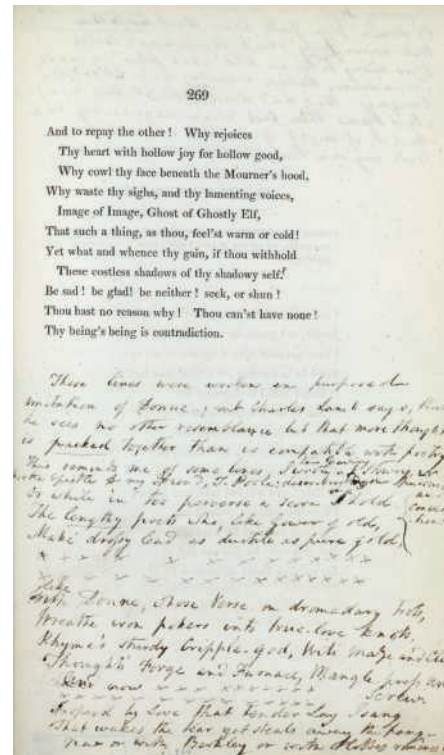 269
And to repay the other! Why rejoices
Thy heart with hollow joy for hollow good,
Why cowl thy face beneath the Mourner's hood,
Why waste thy sighs, and thy lamenting voices,
Image of Image, Ghost of Ghostly Elf,
That such a thing, as thou, feel'st warm or cold!
Yet what and whence thy gain, if thou withhold
These costless shadows of thy shadowy self?
Be sad! be glad! be neither! seek, or shun!
Thou hast no reason why! Thou can'st have none!
Thy being's being is contradiction.
These lines were written in purposed
imitation of Donne; but Charles Lamb says,
he sees no other resemblance but that more thought
is packed together than is compatible with poetry
This reminds me of some lines,
Epistle to my friend, T. Poole
Or while in too perverse a scorn I hold
The lengthy poets who, like Gower of old,
Make drossy lead as ductile as pure gold,
x x x x x x x x x x
With Donne, whose Verse on dromedary trots,
Wreathe iron pokers into true-love knots,
Rhyme's sturdy Cripple, God, Wit's Maze and
Thought's Forge and Furnace, Mangle-press and
Screw.
now x x x x x x
Inspired by Love That Tender Lay
That wakes the tear yet steals away the
with Berkley or with